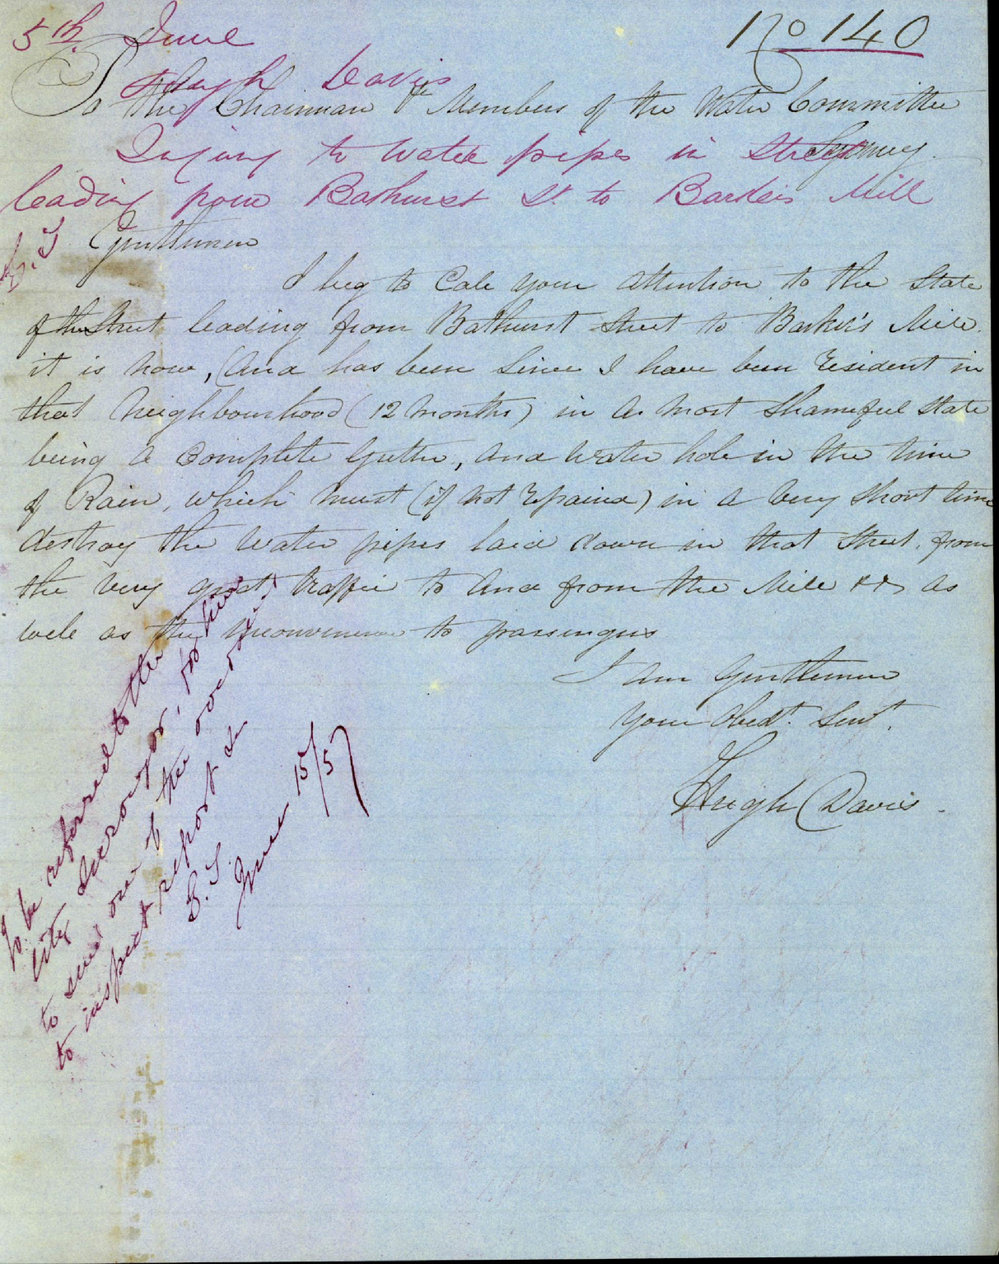 5th June
No 140
Hugh Davis
To the Chairman & Members of the Water Committee
Sydney
Injury to water pipes in Street
leading from Bathurst St to Barker's Mill
Gentlemen
I beg to Call your attention to the State
of the Street leading from Bathurst Street to Barker's Mill.
it is now, (and has been since I have been resident in
that Neighbourhood (12 Months) in a most shameful state
being a complete Gutter, and water hole in the time
of Rain, which must (if not repaired) in a very short time
destroy the water pipes laid down in that Street, from
the very great traffic to and from the Mill as
well as the inconvenience to passengers
I am Gentlemen
Your Obedt. Servt.
Hugh Davis
To be referred to the
City Surveyor,
to send one of the overseers
to inspect & report
June 15/57